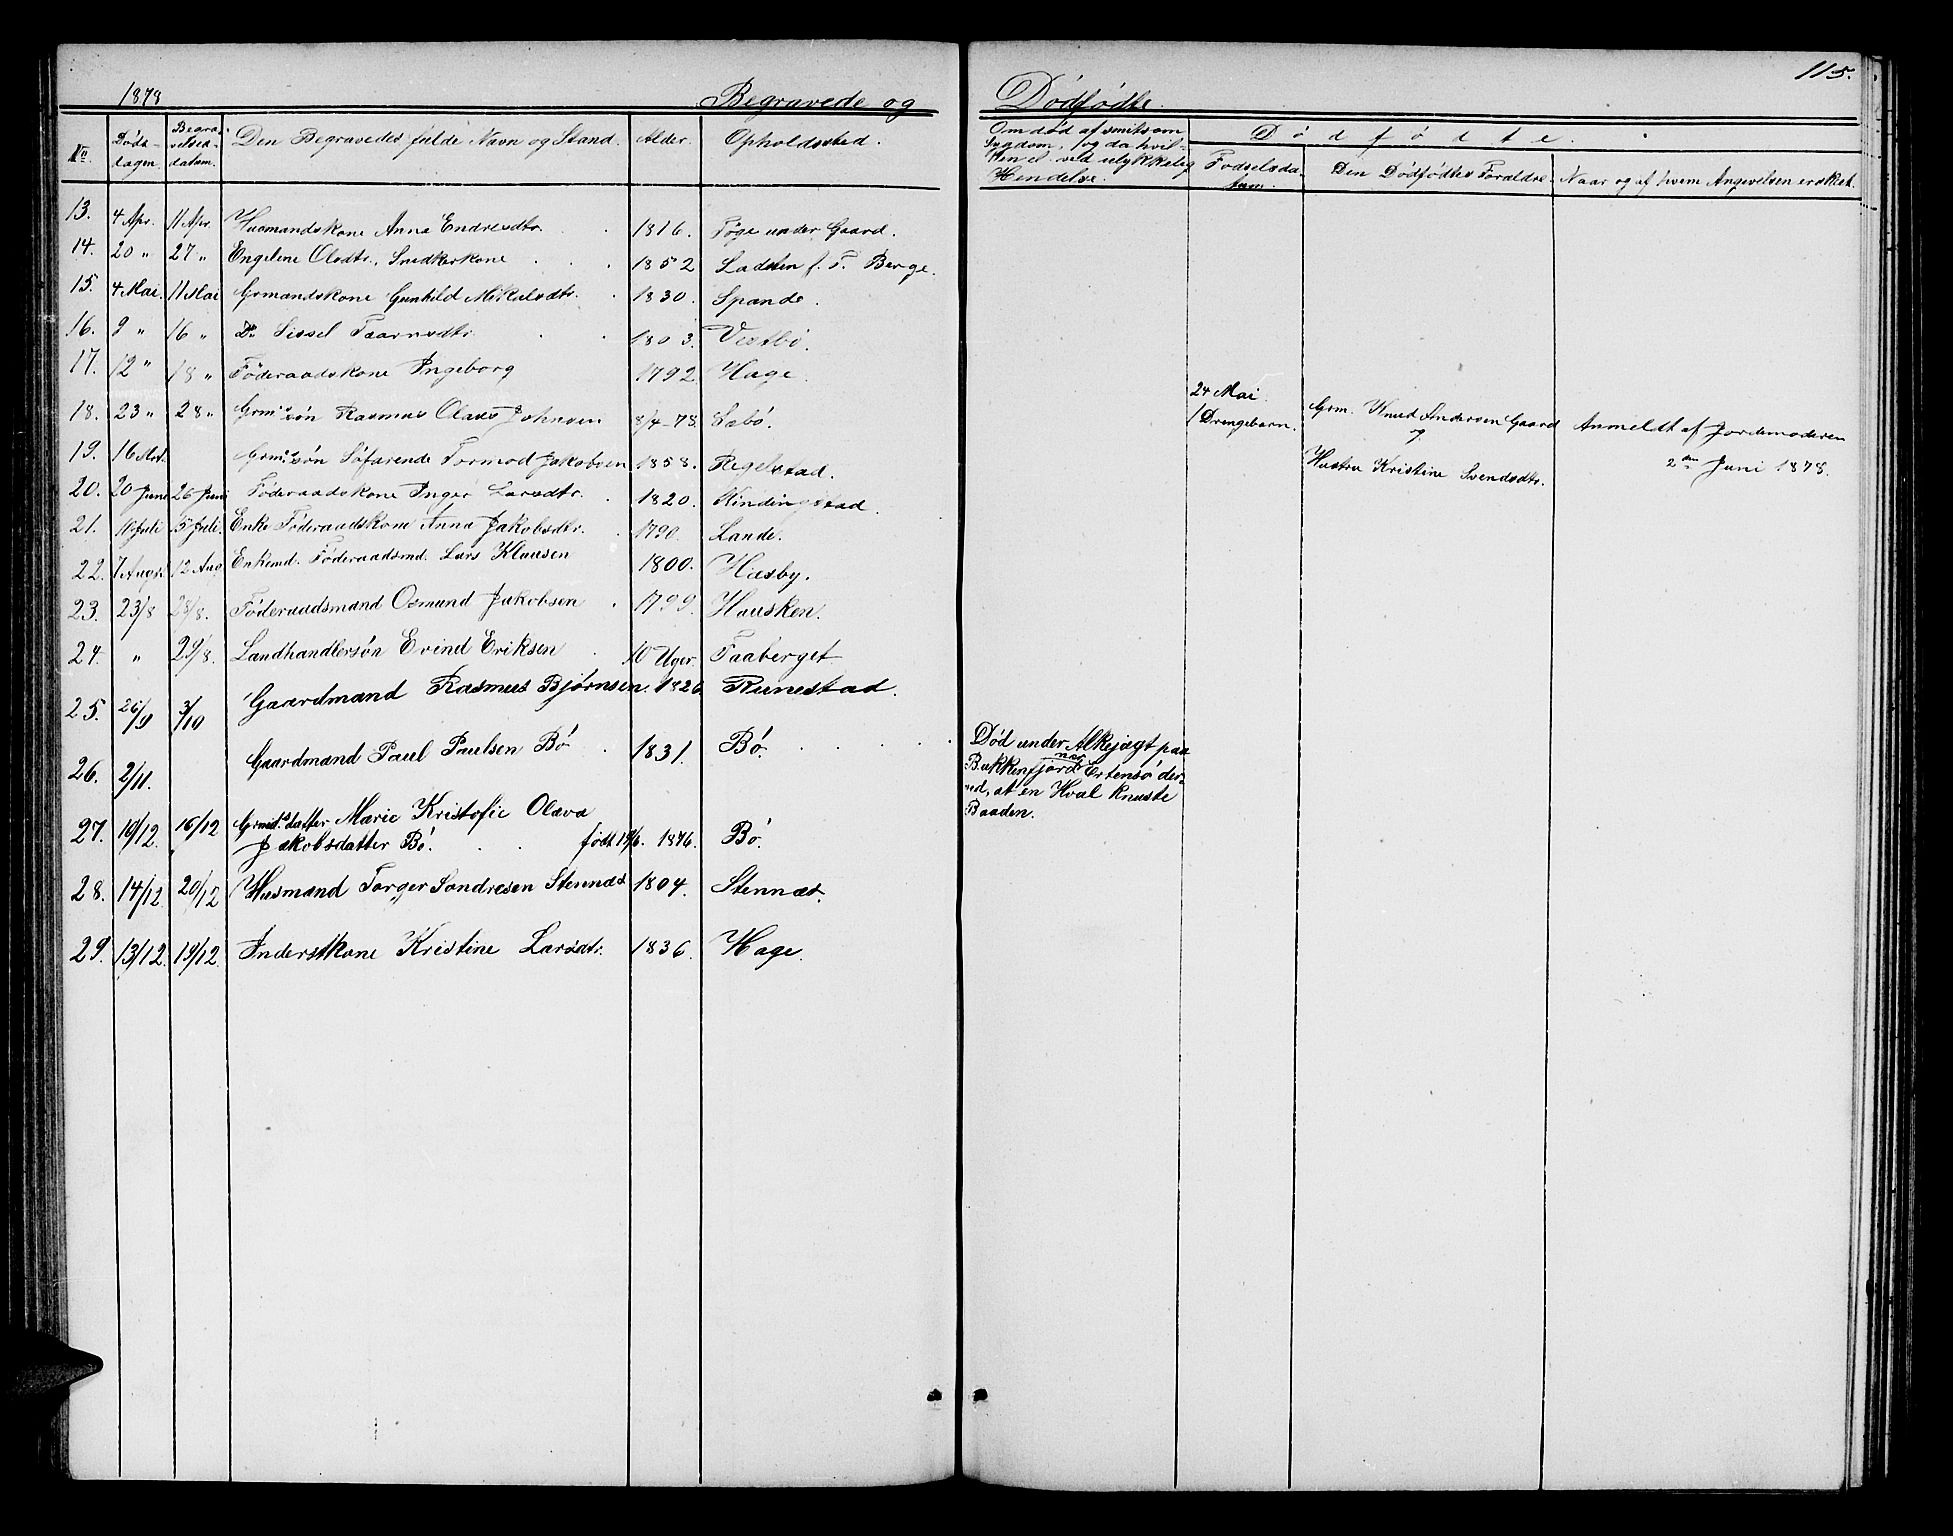 1878
Begravede og
Dödfödte.
115.
No. Döds-dagen. Begra-velses-datum. Den Begravedes fulde Navn og Stand. Alder. Opholdssted.
Om död af smitsom Sygdom, og da hvil-ken el. ved ulykkelig Hendelse.
Dödfödte.
Fødselsda-tum. Den Dödfödtes Foraldre. Naar og af hvem Angevelsen er skeet.
13. 4 Apr. 11 Apr. Husmandskone Anna Endresdtr. 1816. Töge under Gaard.
14. 20 " 27 " Engeline Olsdtr., Snedkerkone 1852 Ladsten f. T. Berge.
15. 4 Mai. 11 Mai Grmandskone Gunhild Mikalsdtr. 1830. Spande.
16. 9 " 16 " Do Sissel Taarnsdtr. 1803. Vestbö.
17. 12 " 18 " Föderaadskone Ingeborg 1792. Hage.
18. 23 " 28 " Grm.s sön Rasmus Olaus Johnsen 8/4-78. Sabö.
24 Mai
1 Drengebarn.
Grm. Knud Andersen Gaard
og
Hustru Kristine Svendsdtr.
Anmeldt af Jordemoderen
2den Juni 1878.
19. 16 Grm.s sön Söfarende Tormod Jakobsen 1858. Regelstad.
20. 20 Juni 26 Juni Föderaadskone Inger Larsdtr. 1820. Kindingstad.
21. Juli 5 Juli. Enke Föderaadskone Anna Jakobsdtr. 1790. Lande.
22. 7 Augst. 12 Aug Enkemd. Föderaadsmd. Lars Klausen 1800. Hæsby.
23. 23/8 28/8. Föderaadsmand Osmund Jakobsen 1799. Hausken.
24. " 29/8. Landhandlersön Evind Eriksen 10 Uger. Faaberget
25. 26/9 3/10 Gaardmand Rasmus Bjørnsen. 1826 Runestad.
26. 2/11. Gaardmand Paul Paulsen Bö 1831. Bö.
Död under Alkejagt paa
Bukkenfjord nær Ertensö der-
ved, at en Hval knuste
Baaden.
27. 10/12. 16/12 Grmd.s datter Marie Kristofie Olava
Jakobsdatter Bö. født 19/6. 1876. Bö.
28. 14/12 20/12 Husmand Torger Sondresen Stennæs 1804. Stennæs.
29. 13/12. 19/12. Inderstkone Kristine Larsdtr. 1836. Hage.